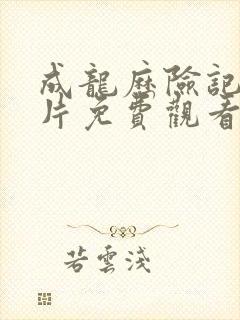 成龍歷險記
片免費觀看
若雲淺